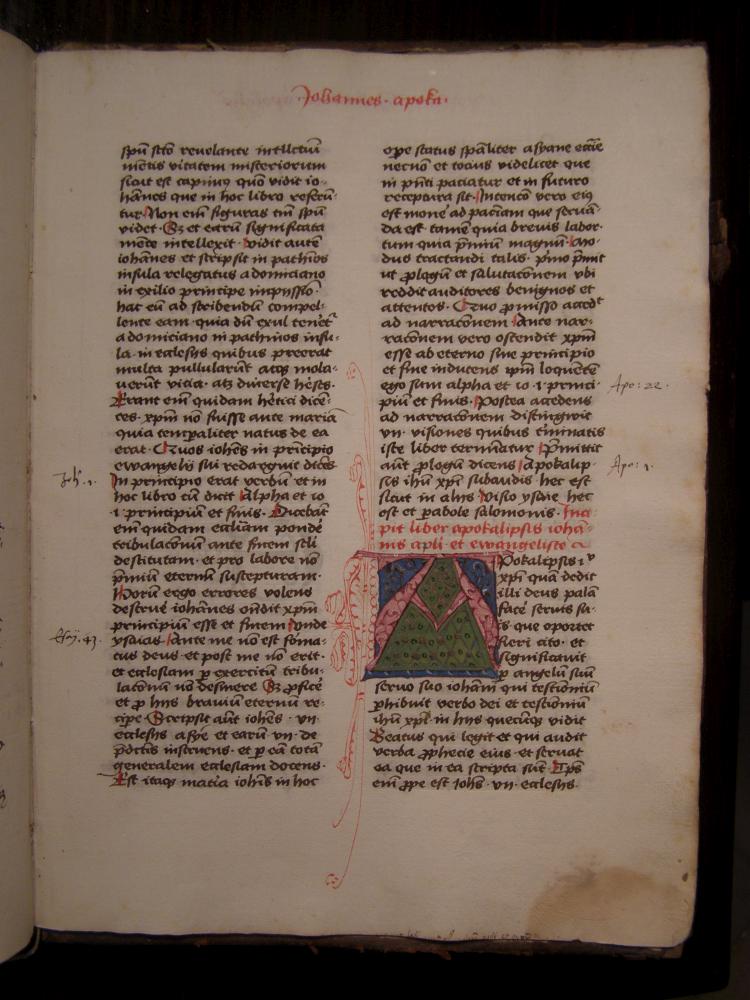 Johannes · apoka ·
spu scto reuelante intllctui
mentis vitatem misteriorum
sicut est capimus quo vidit io-
hanes que in hoc libro referu-
tur Non em figuras tm spu
videt · Sz et earu significata
mete intellexit · vidit aute
iohanes et scripsit in pathmos
insula relegatus a domiciano
in exilio principe impyssio ·
hac eu ad scribendu compel-
lente eam · quia du exul tenet
a domiciano in pathmos insu-
la · in ecclesys quibus preerat
multa pullularut atqz mola-
uerut vicia · atz diuerse heses ·
Erant em quidam hetici dice-
tes · xpm no fuisse ante maria
quia tempaliter natus de ea
erat · Quos iohes in pricipio
ewangelii sui redarguit dices
Joh · 1 ·
In principio erat verbu · et in
hoc libro cu dicit Alpha et io
· i · principiu et finis · Dicebat
em quidam eccliam ponde
tribulacionu ante finem scli
destitutam · et pro labore no
pmiu eternu suscepturam ·
Horu ergo errores volens
destrue iohanes ondit xpm
principiu esse et finem vnde
Esay · 43 ·
ysaias Ante me no est forma-
tus deus · et post me no erit ·
et ecclesiam p exercitu tribu-
lacionu no desinere Sz pficé
et p hys brauiu eternu re-
cipe · Scripsit aut iohes · vii ·
ecclesys asye · et earu vii · de
pdctis instruens · et p ea tota
generalem ecclesiam docens ·
Est itaqz matia iohis in hoc
ope status spaliter asyane eccie
necno et tocius videlicet que
in pnti paciatur et in futuro
receptura sit · Intencio vero eius
est mone ad paciam que serua-
da est tame quia breuis labor ·
tum quia pmiu magnu · Mo-
dus tractandi talis · pmo pmit
ut plogu et salutaconem vbi
reddit auditores benignos et
attentos · Quo pmisso acced
ad narraconem Ante nar-
raconem vero ostendit xpm
esse ab eterno sine principio
et fine inducens ipm loquete
ego sum alpha et io · i · princi-
Apo : 22 ·
piu et finis · Postea accedens
ad narraconem distinguit
vii · visiones quibus terminatis
iste liber terminatur · Pmittit
aut plogu dicens Apokalip-
Apo : 1 ·
sis ihu xpi subaudis hec est
sicut in alys Visio ysaie hec
est et pabole salomonis · Inci
pit liber apokalipsis ioha-
nis apli · et ewangeliste
Apokalipsis ihu
xpi qua dedit
illi deus pala
facé seruis su-
is que oportet
fieri cito · et
significauit
p angelu suu
seruo suo iohani qui testioniu
phibuit verbo dei et testioniu
ihu xpi in hys quecuqz vidit
Beatus qui legit et qui audit
verba pphecie eius · et seruat
ea que in ea scripta sut · Tps
em ppe est Iohs · vii · ecclesys